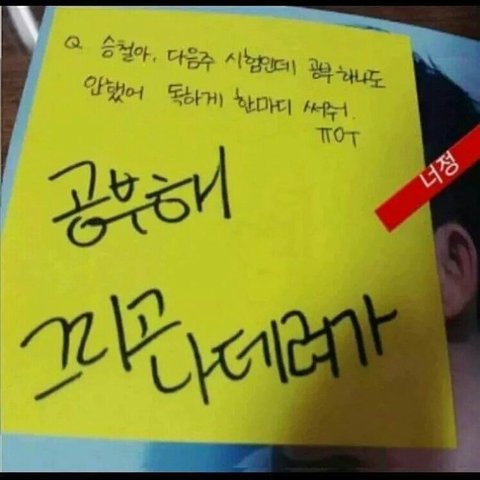 Q. 승철아, 다음주 시험인데 공부 하나도
안했어 독하게 한마디 써줘.
ㅠ0ㅜ
너정
공부해
끄리고
나데려가